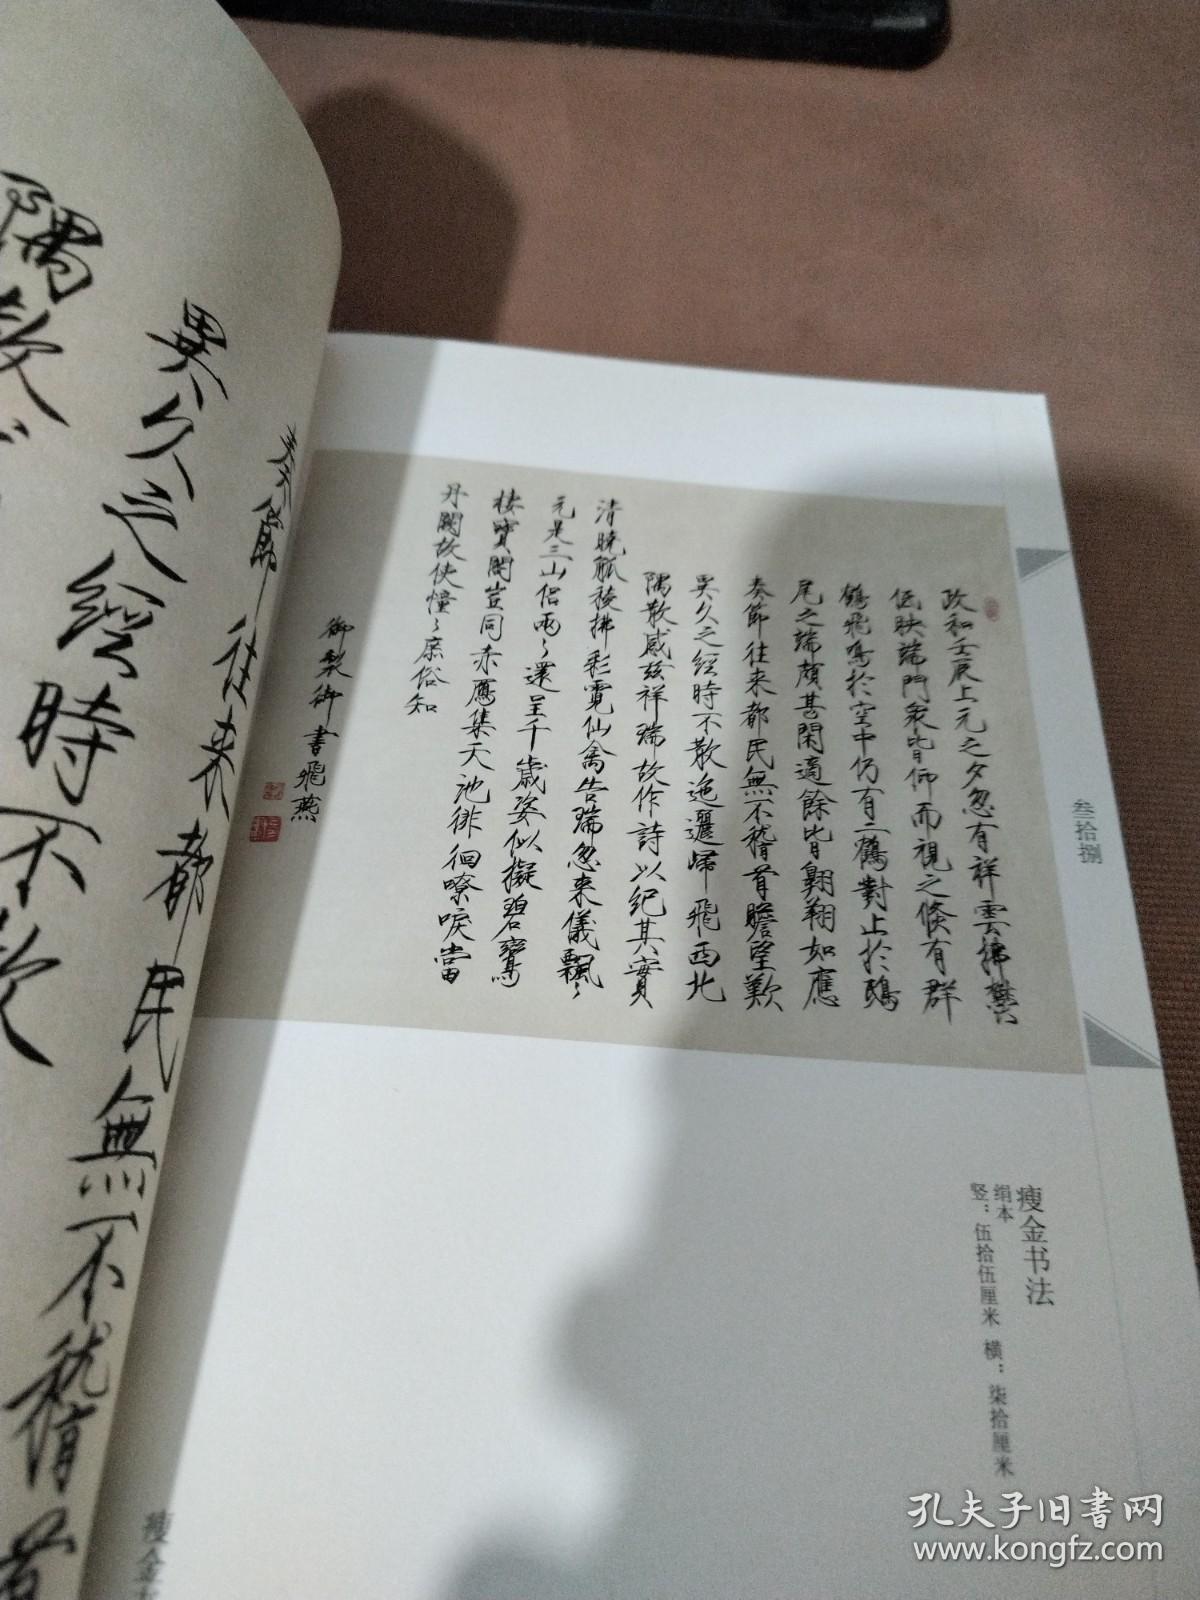 政和壬辰上元之夕忽有祥雲拂欝
低映端門衆皆仰而視之倐有群
鶴飛鳴於空中仍有二鶴對止於鴟
尾之端頗甚閑適餘皆翺翔如應
奏節往来都民無不稽首瞻望歎
異久之經時不散迤邐歸飛西北
隅散感玆祥瑞故作詩以紀其實
清曉觚稜拂彩霓仙禽告瑞忽来儀飄〻
元是三山侣兩〻還呈千歲姿似擬碧鸞
棲寶閣豈同赤鴈集天池徘徊嘹唳當
丹闕故使憧〻庶俗知
御製御書飛燕
叁拾捌
瘦金书法
绢本
竖：伍拾伍厘米 横：柒拾厘米
奏節往来都民無不稽首
異久之經時不散
隅散
瘦金
孔夫子旧书网
www.kongfz.com